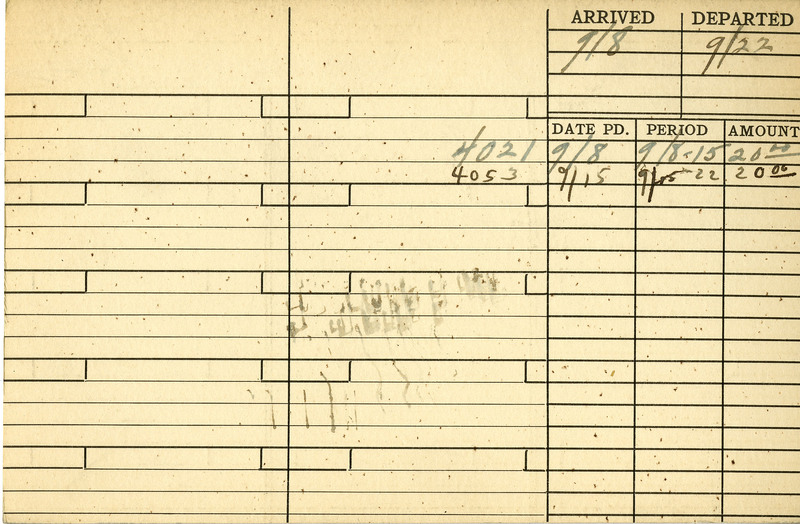 ARRIVED DEPARTED
9/8 9/22
DATE PD. PERIOD AMOUNT
4021 9/8 9/8-15 20 00
4053 9/15 9/15-22 20 00